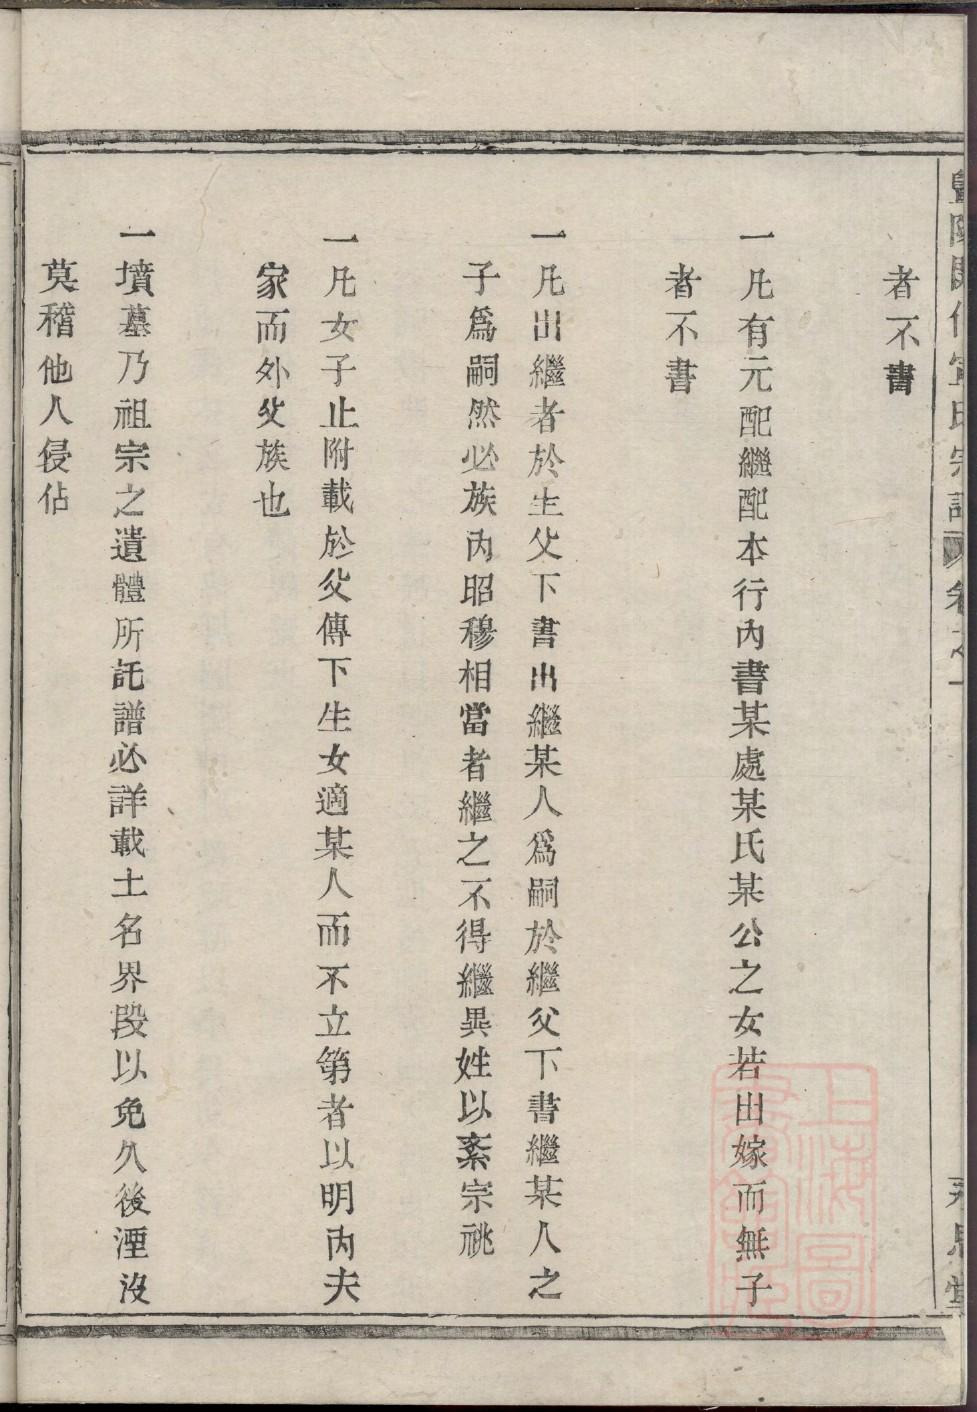 暨陽開化宣氏宗譜 卷之一 永思堂
者不書
一凡有元配繼配本行內書某處某氏某公之女若出嫁而無子
者不書
一凡出繼者於生父下書出繼某人爲嗣於繼父下書繼某人之
子爲嗣然必族內昭穆相當者繼之不得繼異姓以紊宗祧
一凡女子止附載於父傳下生女適某人而不立第者以明內夫
家而外父族也
一墳墓乃祖宗之遺體所託譜必詳載土名界段以免久後湮沒
莫稽他人侵佔
上海圖書館藏